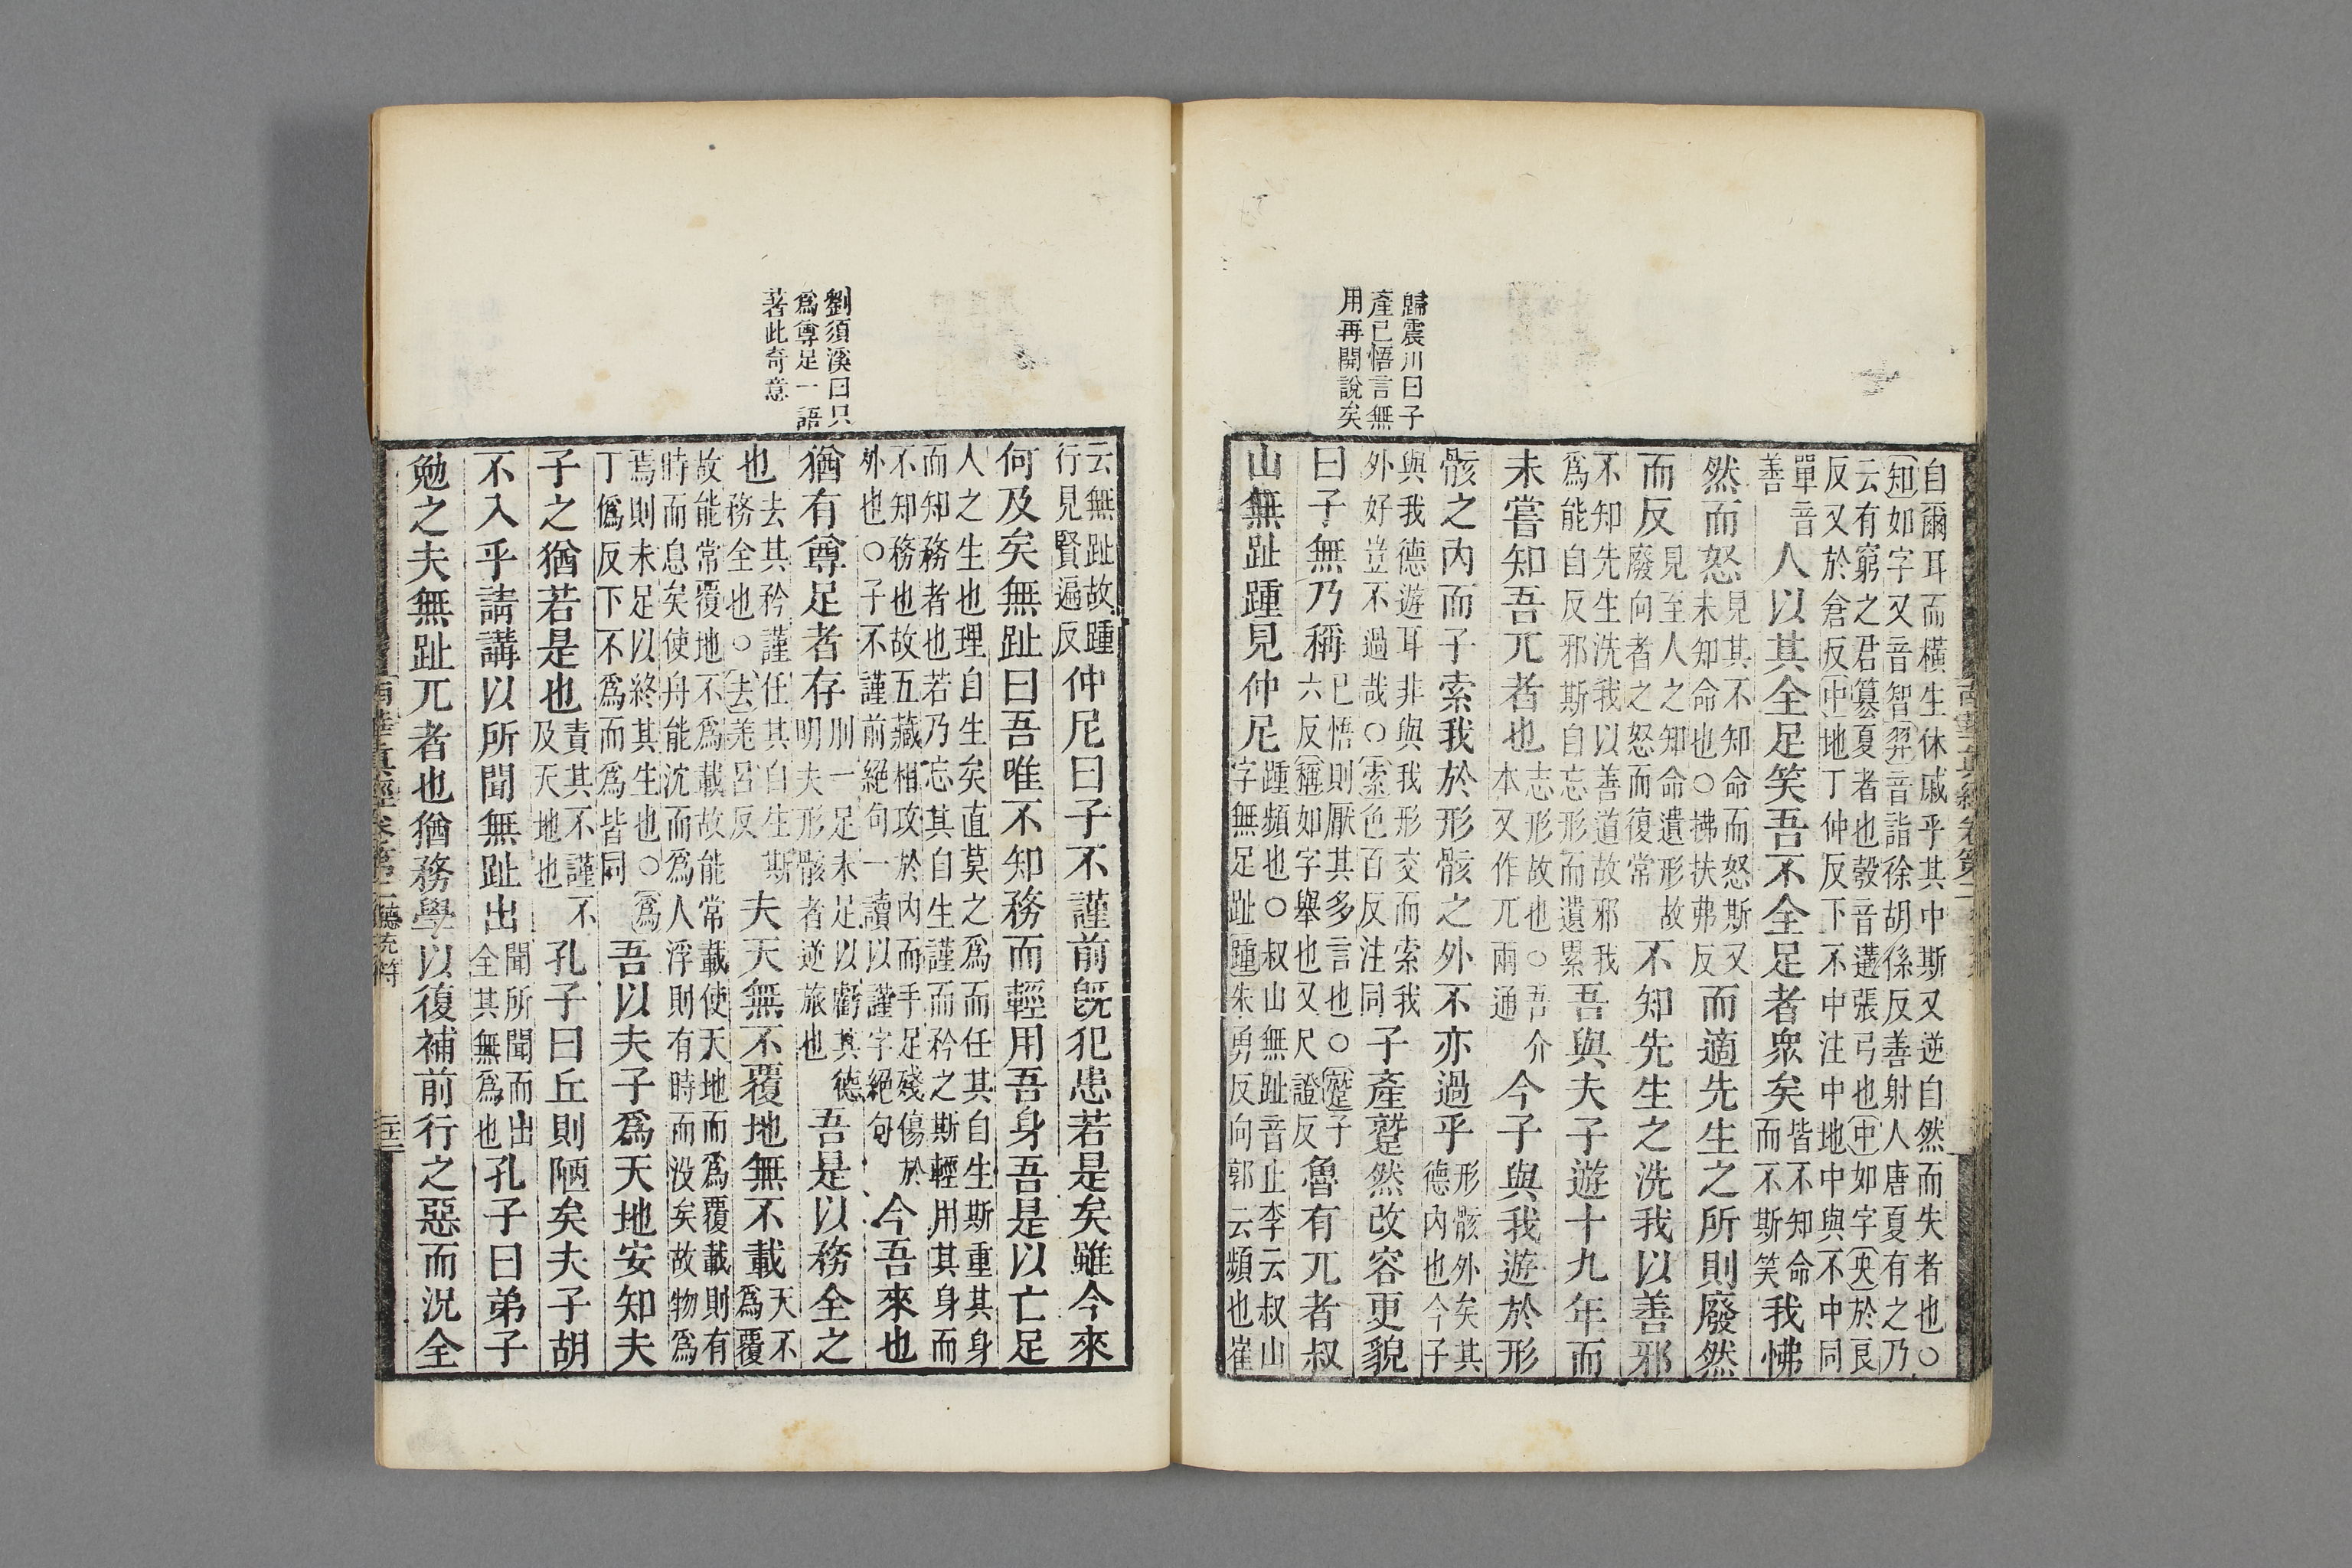 歸震川曰子
產已悟言無
用再開說矣
自爾耳而橫生休戚乎其中斯又逆自然而失者也○
知如字又音智羿音詣徐胡係反善射人唐夏有之乃
云有窮之君篡夏者也彀音遘張弓也中如字央於良
反又於倉反中地丁仲反下不中注中地中與不中同
單音善人以其全足笑吾不全足者眾矣皆不知命而不斯笑我怫
然而怒見其不知命而怒斯又未知命也○拂扶弗反而適先生之所則廢然
而反見至人之知命遺形故廢向者之怒而復常不知先生之洗我以善邪
不知先生洗我以善道故邪我爲能自反邪斯自忘形而遺累吾與夫子遊十九年而
未嘗知吾兀者也志形故也○吾介本又作兀兩通今子與我遊於形
骸之內而子索我於形骸之外不亦過乎形骸外矣其德內也今子
與我德遊耳非與我形交而索我外好豈不過哉○索色百反注同子產蹵然改容更貌
曰子無乃稱已悟則厭其多言也○蹵子六反稱如字舉也又尺證反魯有兀者叔
山無趾踵見仲尼踵頻也○叔山無趾音止李云叔山字無足趾踵朱勇反向郭云頻也崔
劉須溪曰只
爲尊足一語
著此奇意
云無趾故踵行見賢遍反仲尼曰子不謹前旣犯患若是矣雖今來
何及矣無趾曰吾唯不知務而輕用吾身吾是以亡足
人之生也理自生矣直莫之爲而任其自生斯重其身
而知務者也若乃忘其自生謹而矜之斯輕用其身而
不知務也故五藏相攻於內而手足殘傷於外也○子不謹前絕句一讀以謹字絕句今吾來也
猶有尊足者存刖一足未足以虧其德明夫形骸者逆旅也吾是以務全之
也去其矜謹任其自生斯務全也○去羌呂反夫天無不覆地無不載天不爲覆
故能常覆地不爲載故能常載使天地而爲覆載則有
時而息矣使舟能沈而爲人浮則有時而沒矣故物爲
焉則未足以終其生也○爲丁僞反下不爲而爲皆同吾以夫子爲天地安知夫
子之猶若是也責其不謹不及天地也孔子曰丘則陋矣夫子胡
不入乎請講以所聞無趾出聞所聞而出全其無爲也孔子曰弟子
勉之夫無趾兀者也猶務學以復補前行之惡而況全
南華眞經卷第二德充符